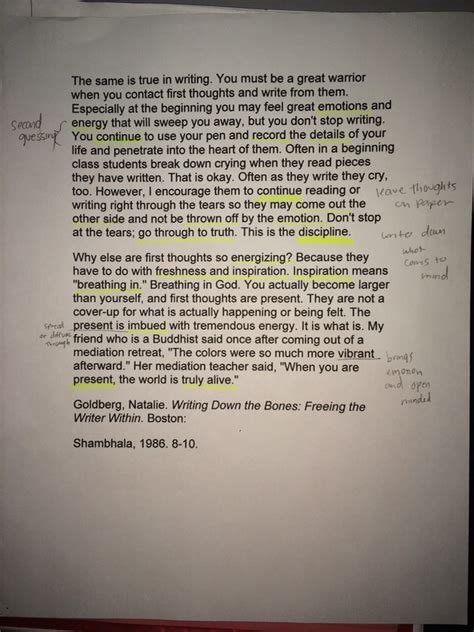 The same is true in writing. You must be a great warrior
when you contact first thoughts and write from them.
Especially at the beginning you may feel great emotions and
energy that will sweep you away, but you don't stop writing.
You continue to use your pen and record the details of your
life and penetrate into the heart of them. Often in a beginning
class students break down crying when they read pieces
they have written. That is okay. Often as they write they cry,
too. However, I encourage them to continue reading or
writing right through the tears so they may come out the
other side and not be thrown off by the emotion. Don't stop
at the tears; go through to truth. This is the discipline.
second
guessing
leave thoughts
on paper
write down
what
comes to
mind
Why else are first thoughts so energizing? Because they
have to do with freshness and inspiration. Inspiration means
"breathing in." Breathing in God. You actually become larger
than yourself, and first thoughts are present. They are not a
cover-up for what is actually happening or being felt. The
present is imbued with tremendous energy. It is what is. My
friend who is a Buddhist said once after coming out of a
mediation retreat, "The colors were so much more vibrant
afterward." Her mediation teacher said, "When you are
present, the world is truly alive."
spread
or diffuse
through
brings
emotion
and open
minded
Goldberg, Natalie. Writing Down the Bones: Freeing the
Writer Within. Boston:
Shambhala, 1986. 8-10.